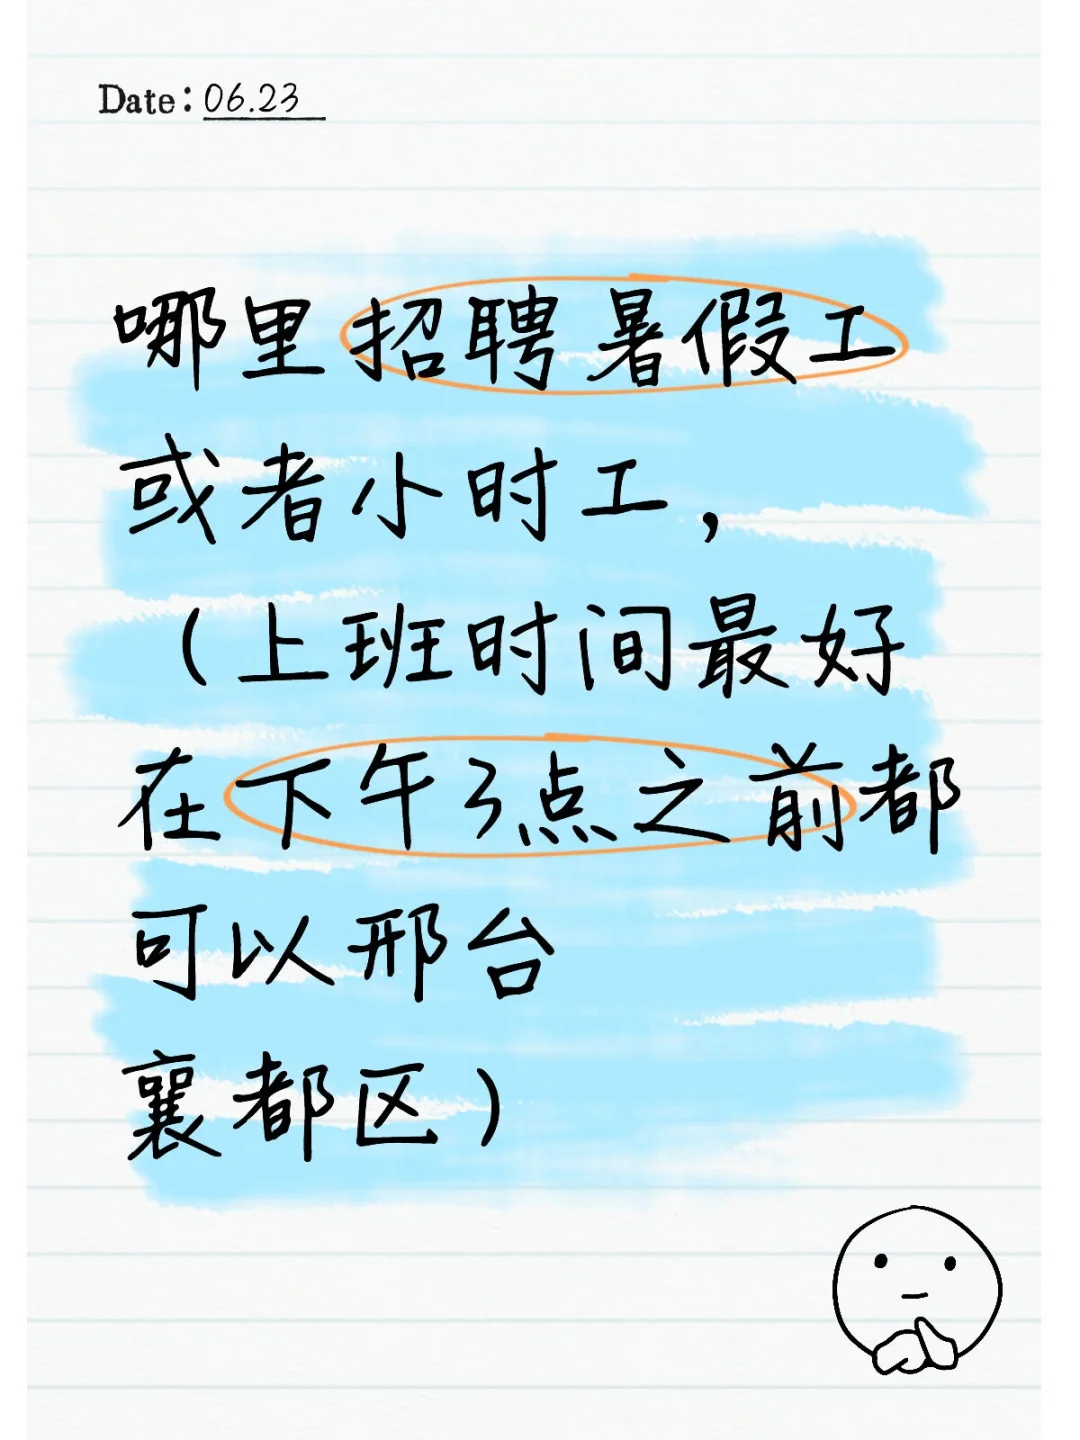 Date: 06.23
哪里招聘暑假工
或者小时工，
（上班时间最好
在下午3点之前都
可以邢台
襄都区）